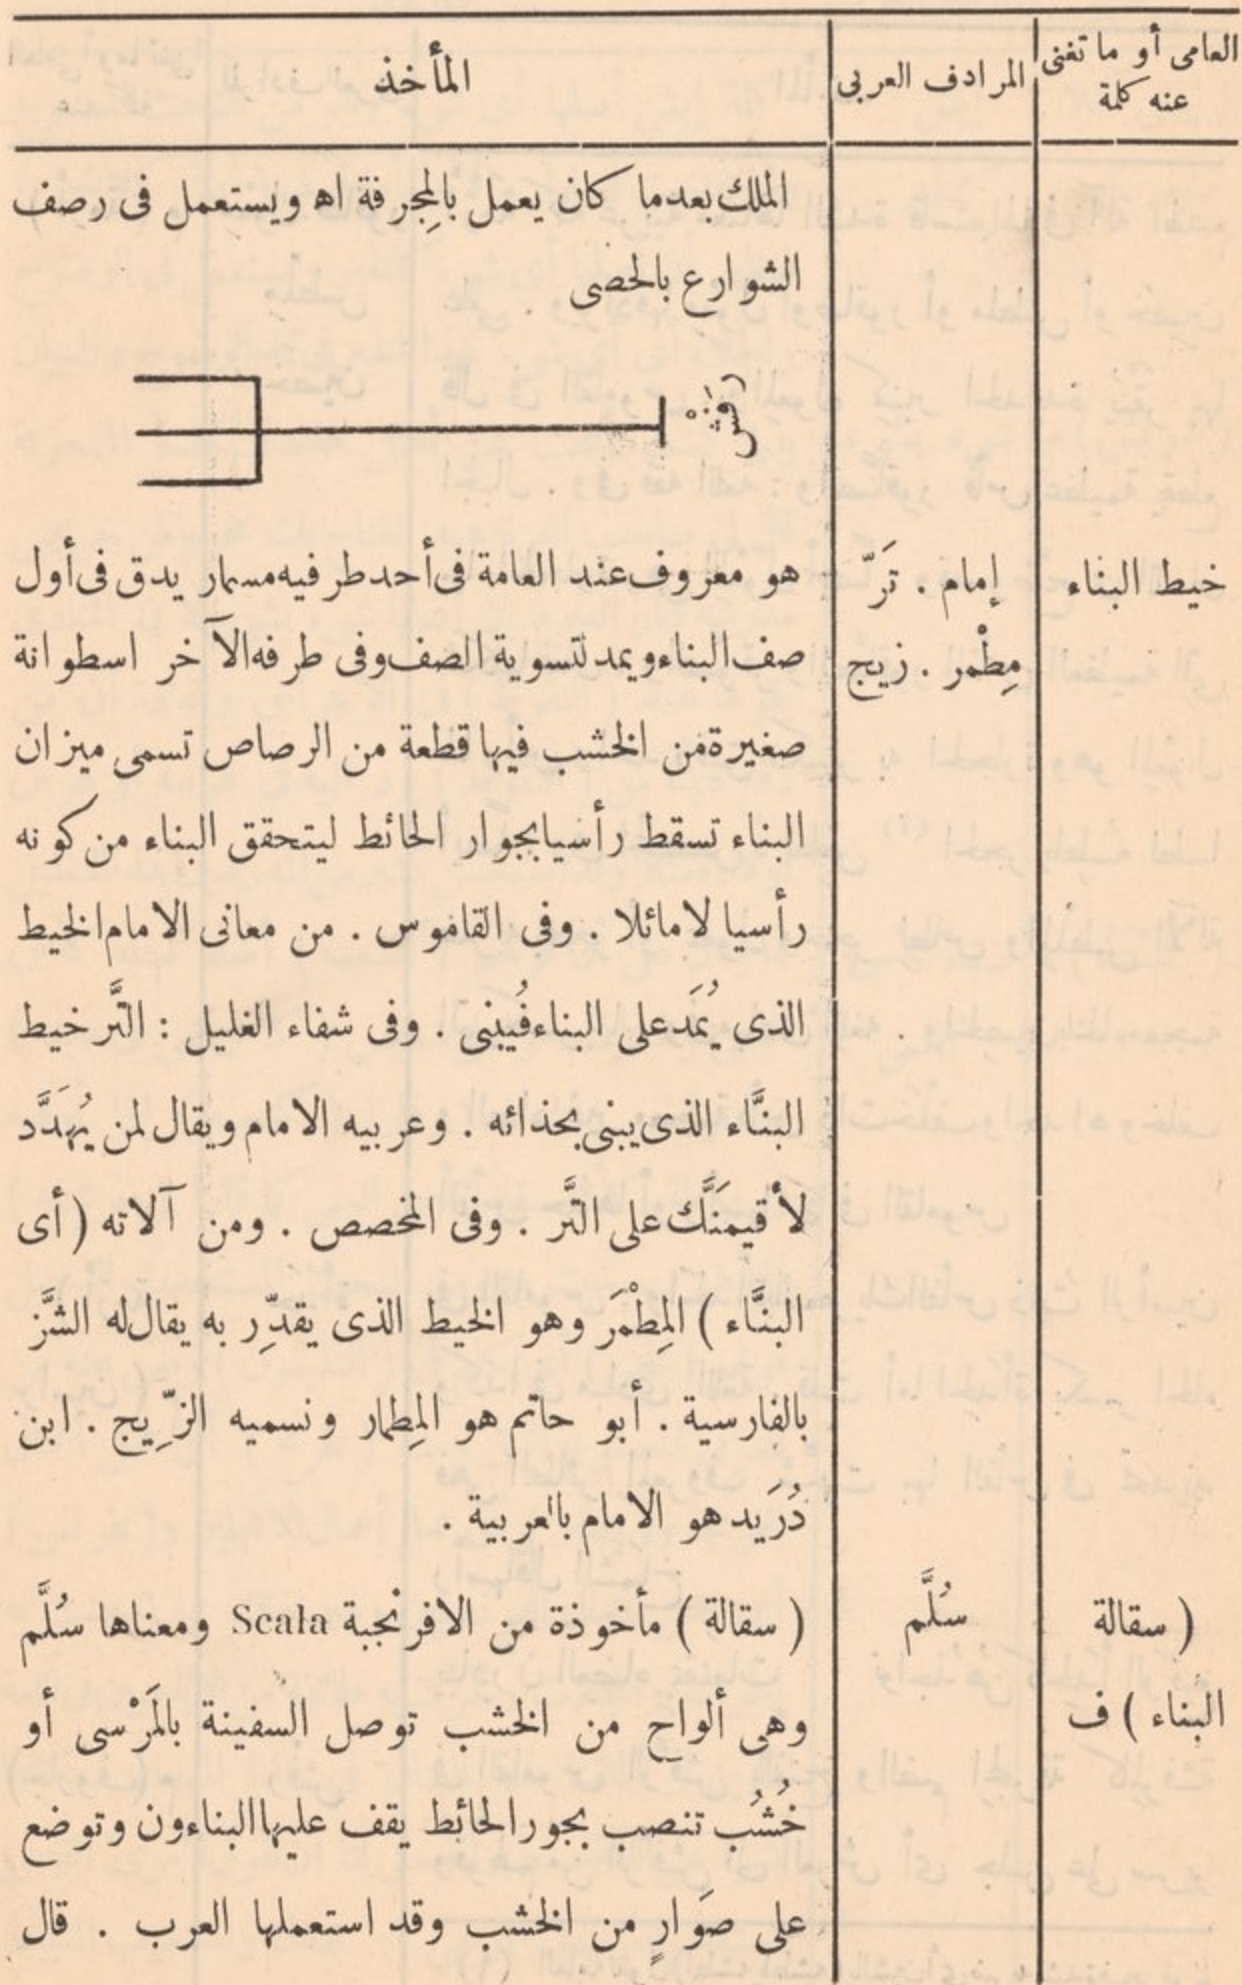 العامى أو ما تغنى عنه كلمة | المرادف العربى | المأخذ
الملك بعدما كان يعمل بالمِجرفة اه ويستعمل فى رصف
الشوارع بالحصى .
رَفْش
خيط البناء | إمام . تَرّ | هو معروف عند العامة فى أحد طرفيه مسمار يدق فى أول
مِطْمر . زيج | صف البناء ويمد لتسوية الصف وفى طرفه الآخر اسطوانة
صغيرة من الخشب فيها قطعة من الرصاص تسمى ميزان
البناء تسقط رأسيا بجوار الحائط ليتحقق البناء من كونه
رأسيا لا مائلا . وفى القاموس . من معانى الامام الخيط
الذى يُمَد على البناء فُيبنى . وفى شفاء الغليل : التَّر خيط
البنَّاء الذى يبنى بحذائه . وعربيه الامام ويقال لمن يُهَدَّد
لأقيمَنَّك على التَّر . وفى المخصص . ومن آلاته ( أى
البنَّاء ) المِطْمَر وهو الخيط الذى يقدِّر به يقال له الشَّز
بالفارسية . أبو حاتم هو المِطمار ونسميه الزِّيج . ابن
دُرَيد هو الامام بالعربية .
( سقالة | سُلَّم | ( سقالة ) مأخوذة من الافرنجية Scala ومعناها سُلَّم
البناء ) ف | وهى ألواح من الخشب توصل السفينة بالمَرْسى أو
خُشُب تنصب بجور الحائط يقف عليها البناءون وتوضع
على صَوارٍ من الخشب وقد استعملها العرب . قال